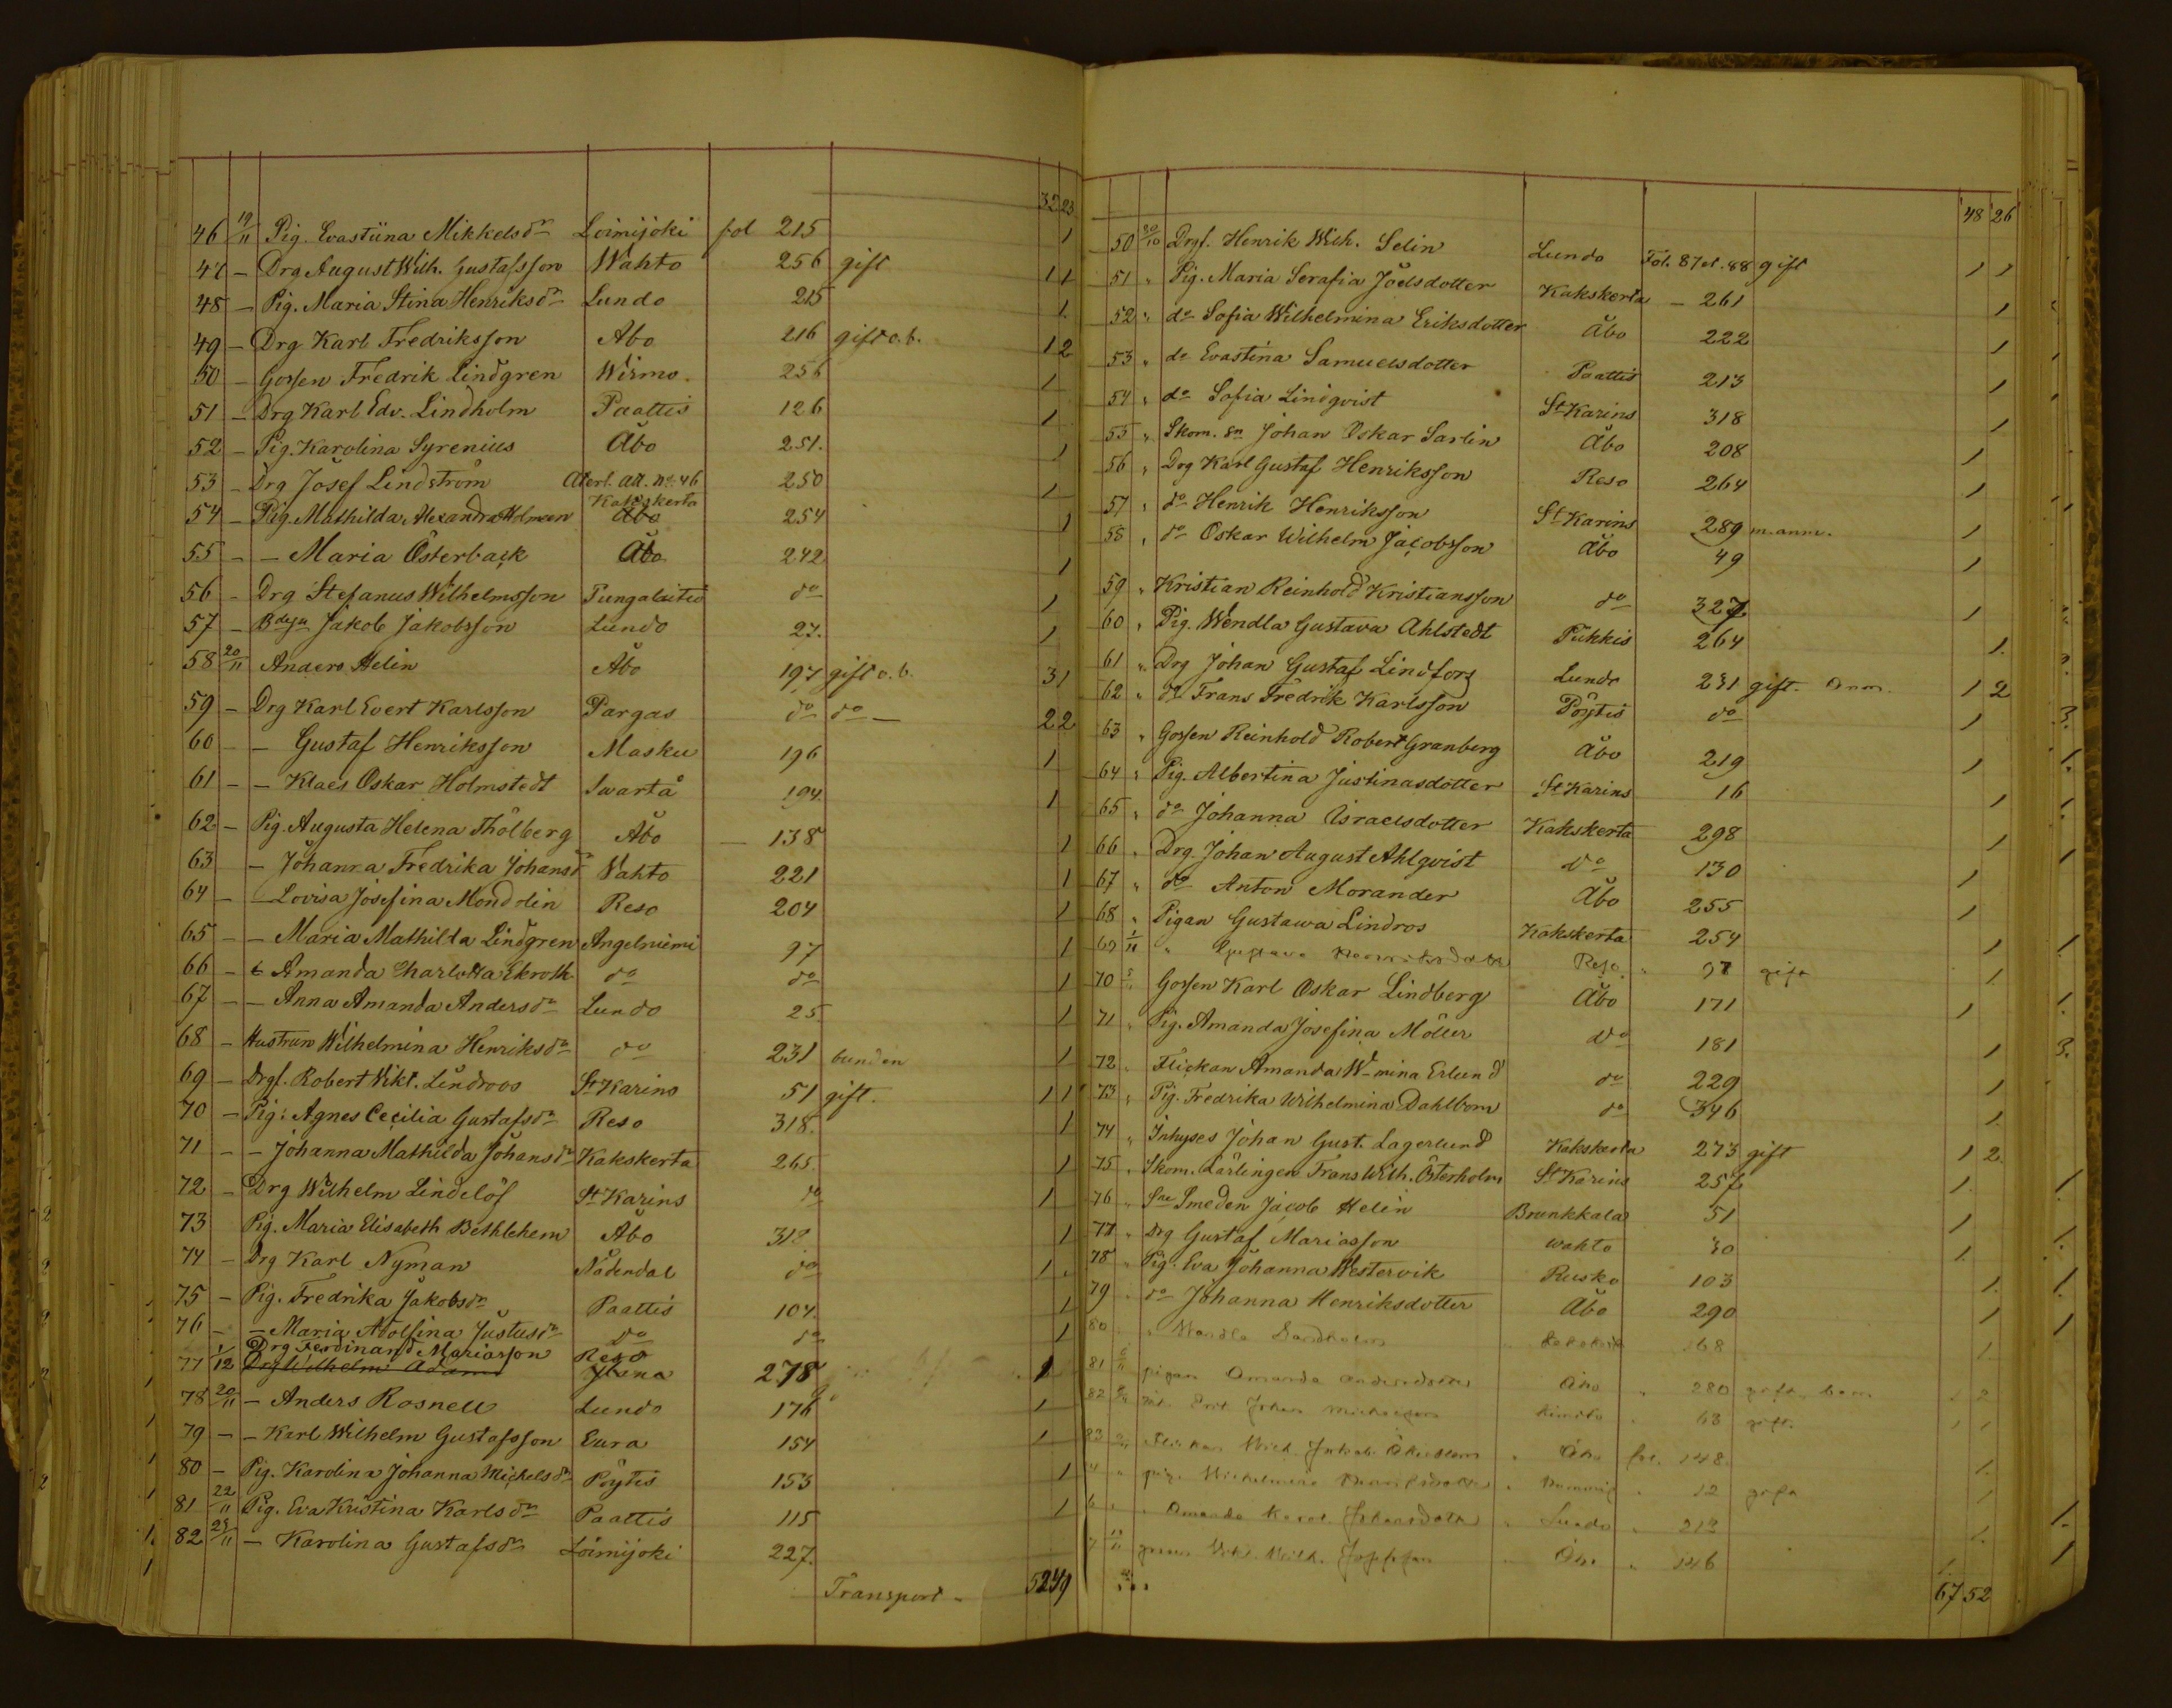 32 23
46 19/11 Pig. Evastiina Mikkelsdr Loimijoki fol 215 1
47 – Drg August Wilh. Gustafsson Wahto 256 gift 1 1
48 – Pig. Maria Stina Henriksdr Lundo 215 1
49 – Drg Karl Fredriksson Åbo 216 gift o. b. 1 2
50 – Gossen Fredrik Lindgren Wirmo. 256 1
51 – Drg Karl Edv. Lindholm Paattis 126 1
52 – Pig. Karolina Syrenius Åbo 251. 1
53 – Drg Josef Lindström Återl. att. No 46 250 1
54 – Pig. Mathilda Alexandra Holmeen Kakskerta Åbo 254 1
55 – – Maria Österback Åbo 242 1
56 – Drg Stefanus Wilhelmsson Pungalaitio do 1
57 – Jakob Jakobsson Lundo 27. 1
58 20/11 Anders Helin Åbo 197 gift o. b. 3 1
59 – Drg Karl Evert Karlsson Pargas do do – 2 2
60 – – Gustaf Henriksson Masku 196 1
61 – – Klaes Oskar Holmstedt Swartå 194 1
62 – Pig. Augusta Helena Thölberg Åbo – 138 1
63 – Johanna Fredrika Johansdr Wahto 221 1
64 – – Lovisa Josefina Mondolin Reso 204 1
65 – – Maria Mathilda Lindgren Angelniemi 97 1
66 – Amanda Charlotta Ekroth do do 1
67 – – Anna Amanda Andersdr Lundo 25. 1
68 – Hustrun Wilhelmina Henriksdr do 231 bunden 1
69 – Drgf. Robert Wikt. Lindroos St Karins 51 gift. 1 1
70 – Pig. Agnes Cecilia Gustafsdr Reso 318. 1
71 – – Johanna Mathilda Johansdr Kakskerta 265. 1
72 – Drg Wilhelm Lindelöf St Karins do 1
73 Pig. Maria Elisabeth Bethlehem Åbo 312 1
74 – Drg Karl Nyman Nådendal do 1
75 – Pig. Fredrika Jakobsdr Paattis 104. 1
76 – – Maria Adolfina Justusdr do do 1
Drg Ferdinand Mariasson Reso
77 1/12 Drg Wilhelm Adams Yläne 278 1
78 20/11 – Anders Rosnell Lundo 176 1
79 – – Karl Wilhelm Gustafsson Eura 154 1
80 – Pig. Karolina Johanna Michelsdr Pöytis 153 1
81 22/11 Pig. Eva Kristina Karlsdr Paattis 115 1
82 25/11 – Karolina Gustafsdr Loimijoki 227.
Transport – 52 49
48 26
50 20/10 Drgf. Henrik Wilh. Selin Lundo Fol. 87 o. 88 gift 1 1
51 " Pig. Maria Serafia Joelsdotter Kakskerta – 261 1
52 " do Sofia Wilhelmina Eriksdotter Åbo 222 1
53 " do Evastina Samuelsdotter Paattis 213 1
54 " do Sofia Lindqvist St Karins 318 1
55 " Skom. sn Johan Oskar Sarlin Åbo 208 1
56 " Drg Karl Gustaf Henriksson Reso 264 1
57 " do Henrik Henriksson St Karins 289 m. anm. 1
58 " do Oskar Wilhelm Jacobsson Åbo 49 1
59 " Kristian Reinhold Kristiansson do 327 1
60 " Pig. Wendla Gustava Ahlstedt Pikkis 264 1.
61 " Drg Johan Gustaf Lindfors Lundo 231 gift. 1 2
62 " do Frans Fredrik Karlsson Pöytis do 1
63 " Gossen Reinhold Robert Granberg Åbo 219 1
64 " Pig. Albertina Justinasdotter St Karins 16 1
65 " do Johanna Israelsdotter Kakskerta 298 1
66 " Drg. Johan August Ahlqvist do 130 1
67 " do Anton Morander Åbo 255 1
68 " Pigan Gustawa Lindros Kakskerta 254 1
69 1/11 " Gustava Henriksdotter Reso 97 gift 1
70 5 Gossen Karl Oskar Lindberg Åbo 171 1
71 " Pig. Amanda Josefina Möller do 181 1
72 " Flickan Amanda W-mina Erlund do 229 1
73 " Pig. Fredrika Wilhelmina Dahlbom do 346 1.
74 " Inhyses Johan Gust. Lagerlund Kakskerta 273 gift 1 2
75 " Skom. Lärlingen Frans Wilh. Österholm St Karins 257 1.
76 " Sne Smeden Jacob Helin Brunkkala 51 1
77 " Drg Gustaf Mariasson Wahto 30 1.
78 " Pig. Eva Johanna Westervik Rusko 103 1.
79 " do Johanna Henriksdotter Åbo 290 1
80 " Wendla Sandholm 168 1
81 pigan Amanda Andersdotter Åbo " 280 gift barn 2
82 Johan Kimito 63 gift. 1
83 Flickan Åbo fol. 148. 1.
4 " pig. Wilhelmina Henriksdotter " 12 gift 1
6 " " Amanda Karol. Johansdotter " Lundo " 212 1.
7 Wilh. Åbo " 146
67 52